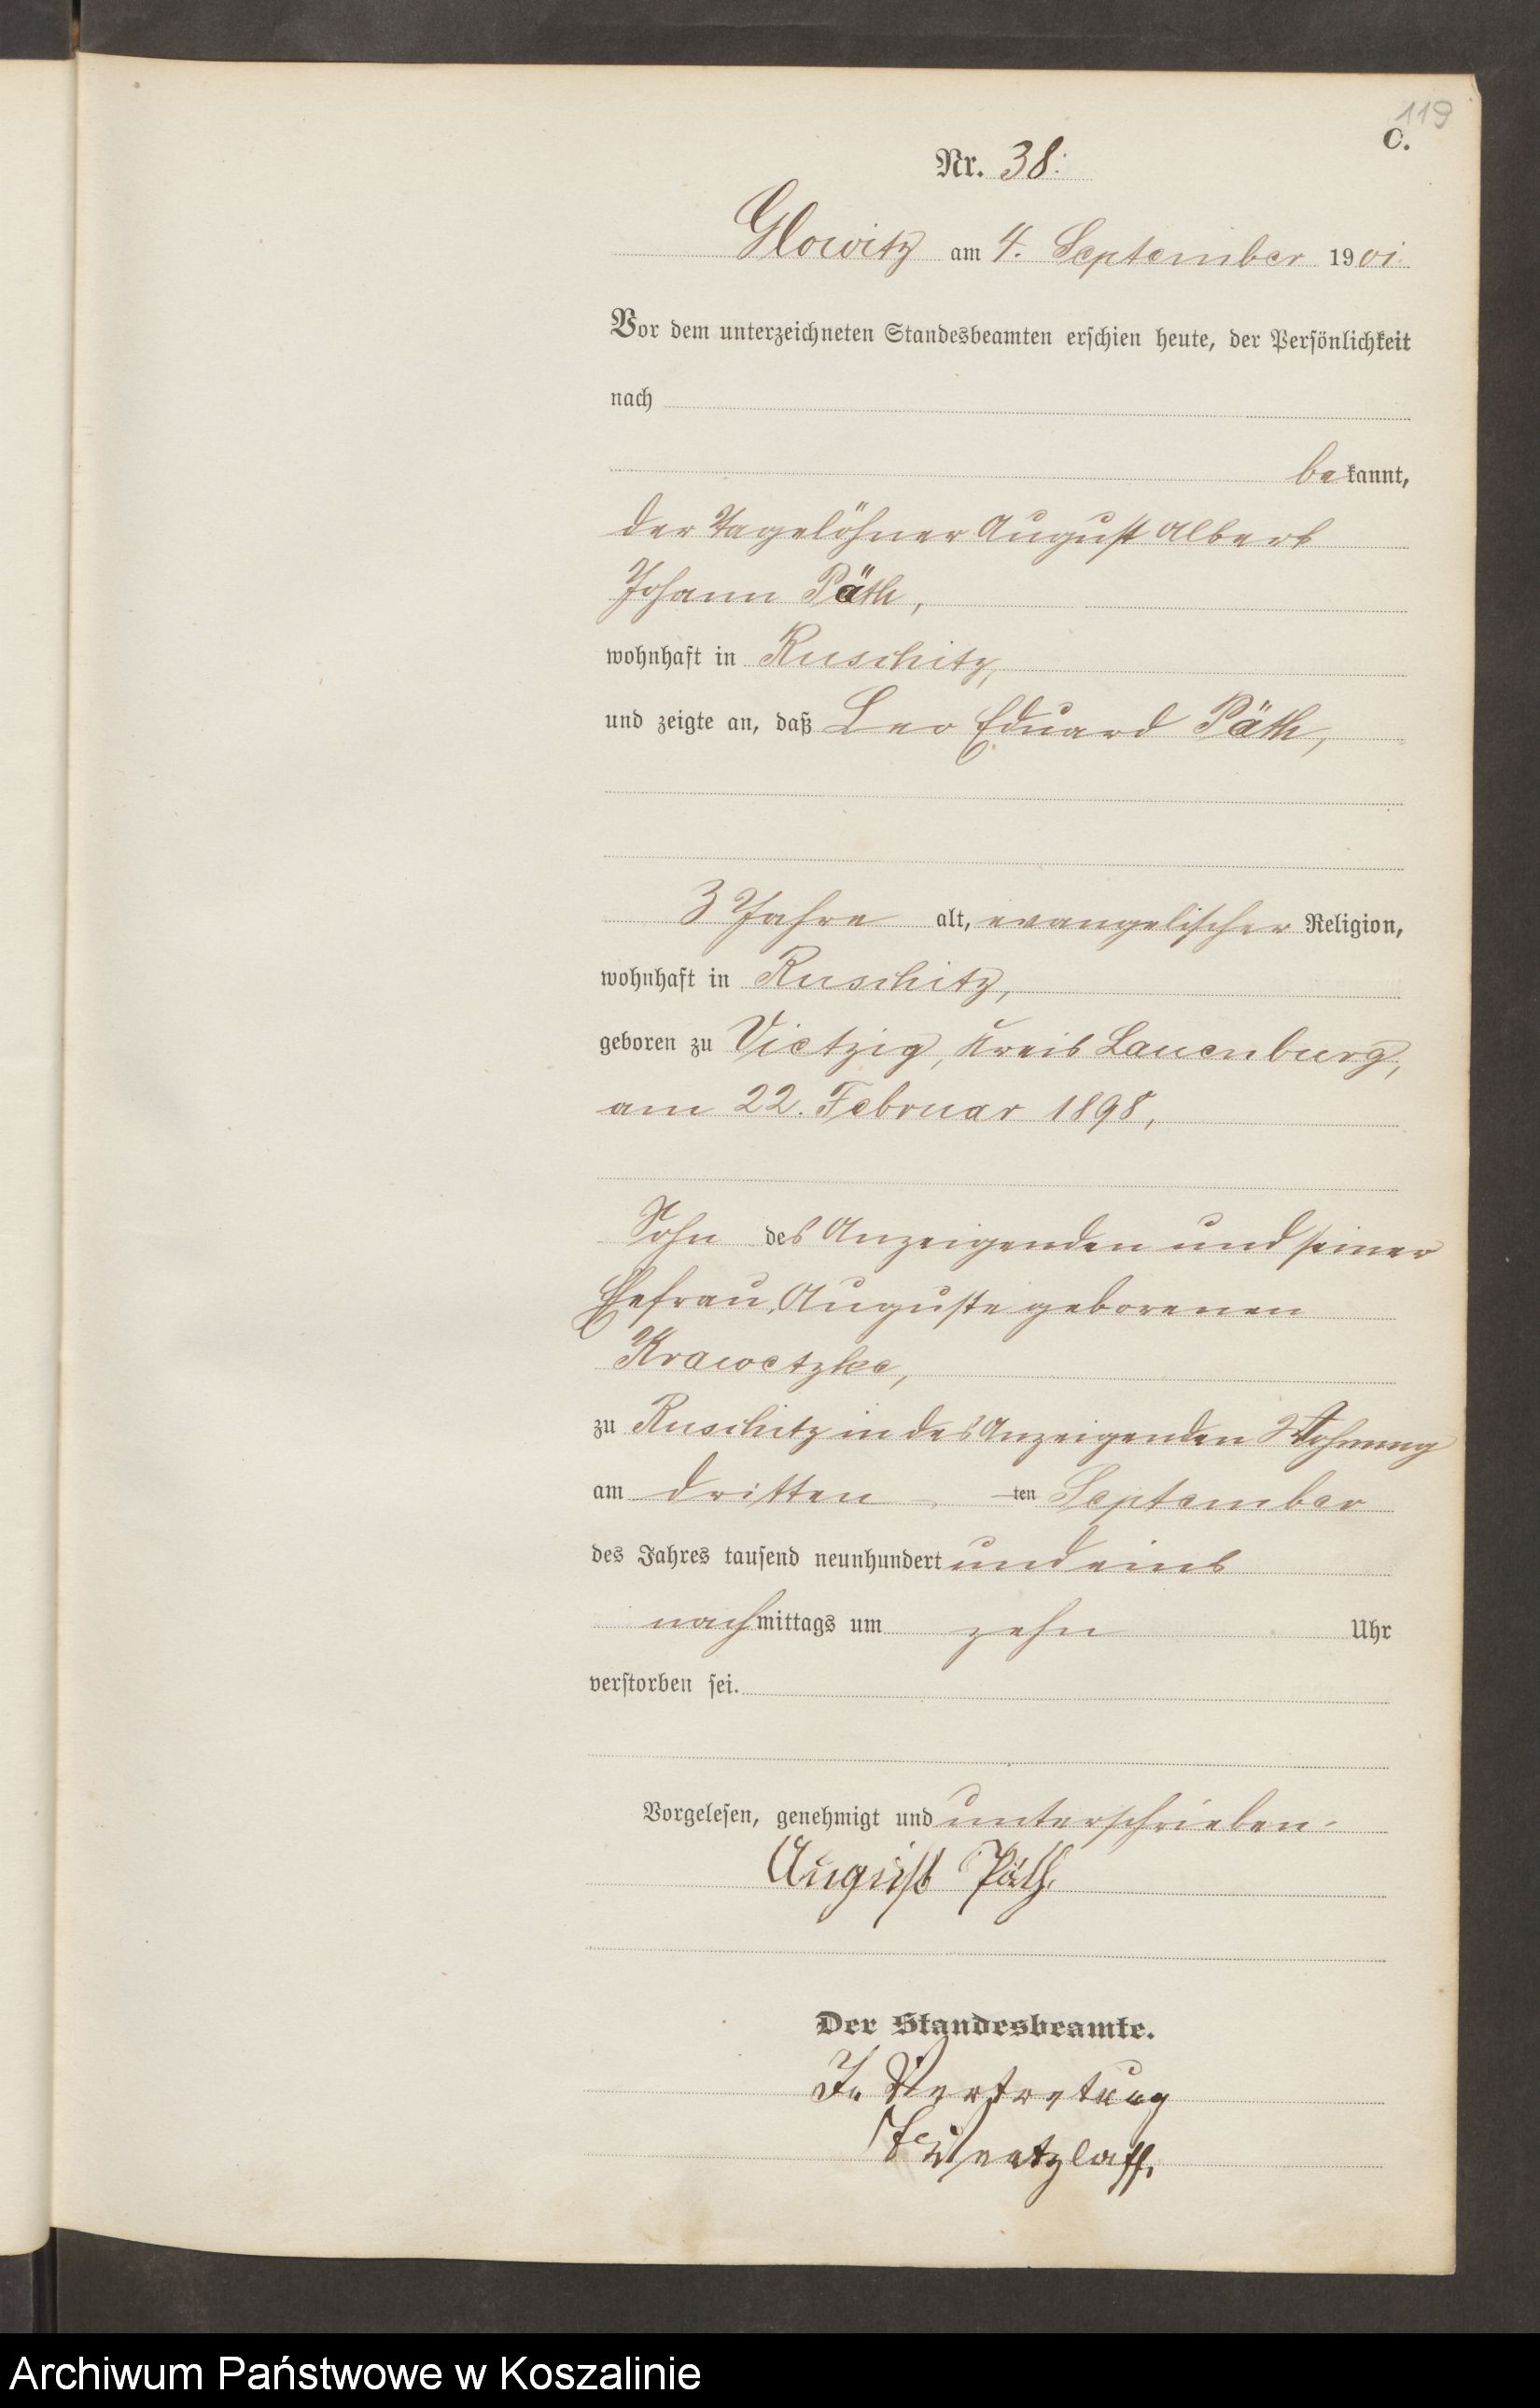 119
C.
Nr. 38.
Glowitz am 4. September 1901.
Vor dem unterzeichneten Standesbeamten erschien heute, der Persönlichkeit
nach
bekannt,
der Tagelöhner August Albert
Johann Päth,
wohnhaft in Ruschitz,
und zeigte an, daß Leo Eduard Päth,
3 Jahre alt, evangelischer Religion,
wohnhaft in Ruschitz,
geboren zu Vietzig, Kreis Lauenburg,
am 22. Februar 1898,
Sohn des Anzeigenden und seiner
Ehefrau, Auguste geborenen
Krawetzke,
zu Ruschitz in des Anzeigenden Wohnung
am dritten ten September
des Jahres tausend neunhundert und eins
nachmittags um zehn Uhr
verstorben sei.
Vorgelesen, genehmigt und unterschrieben.
August Päth.
Der Standesbeamte.
In Vertretung
Wentzlaff.
Archiwum Państwowe w Koszalinie